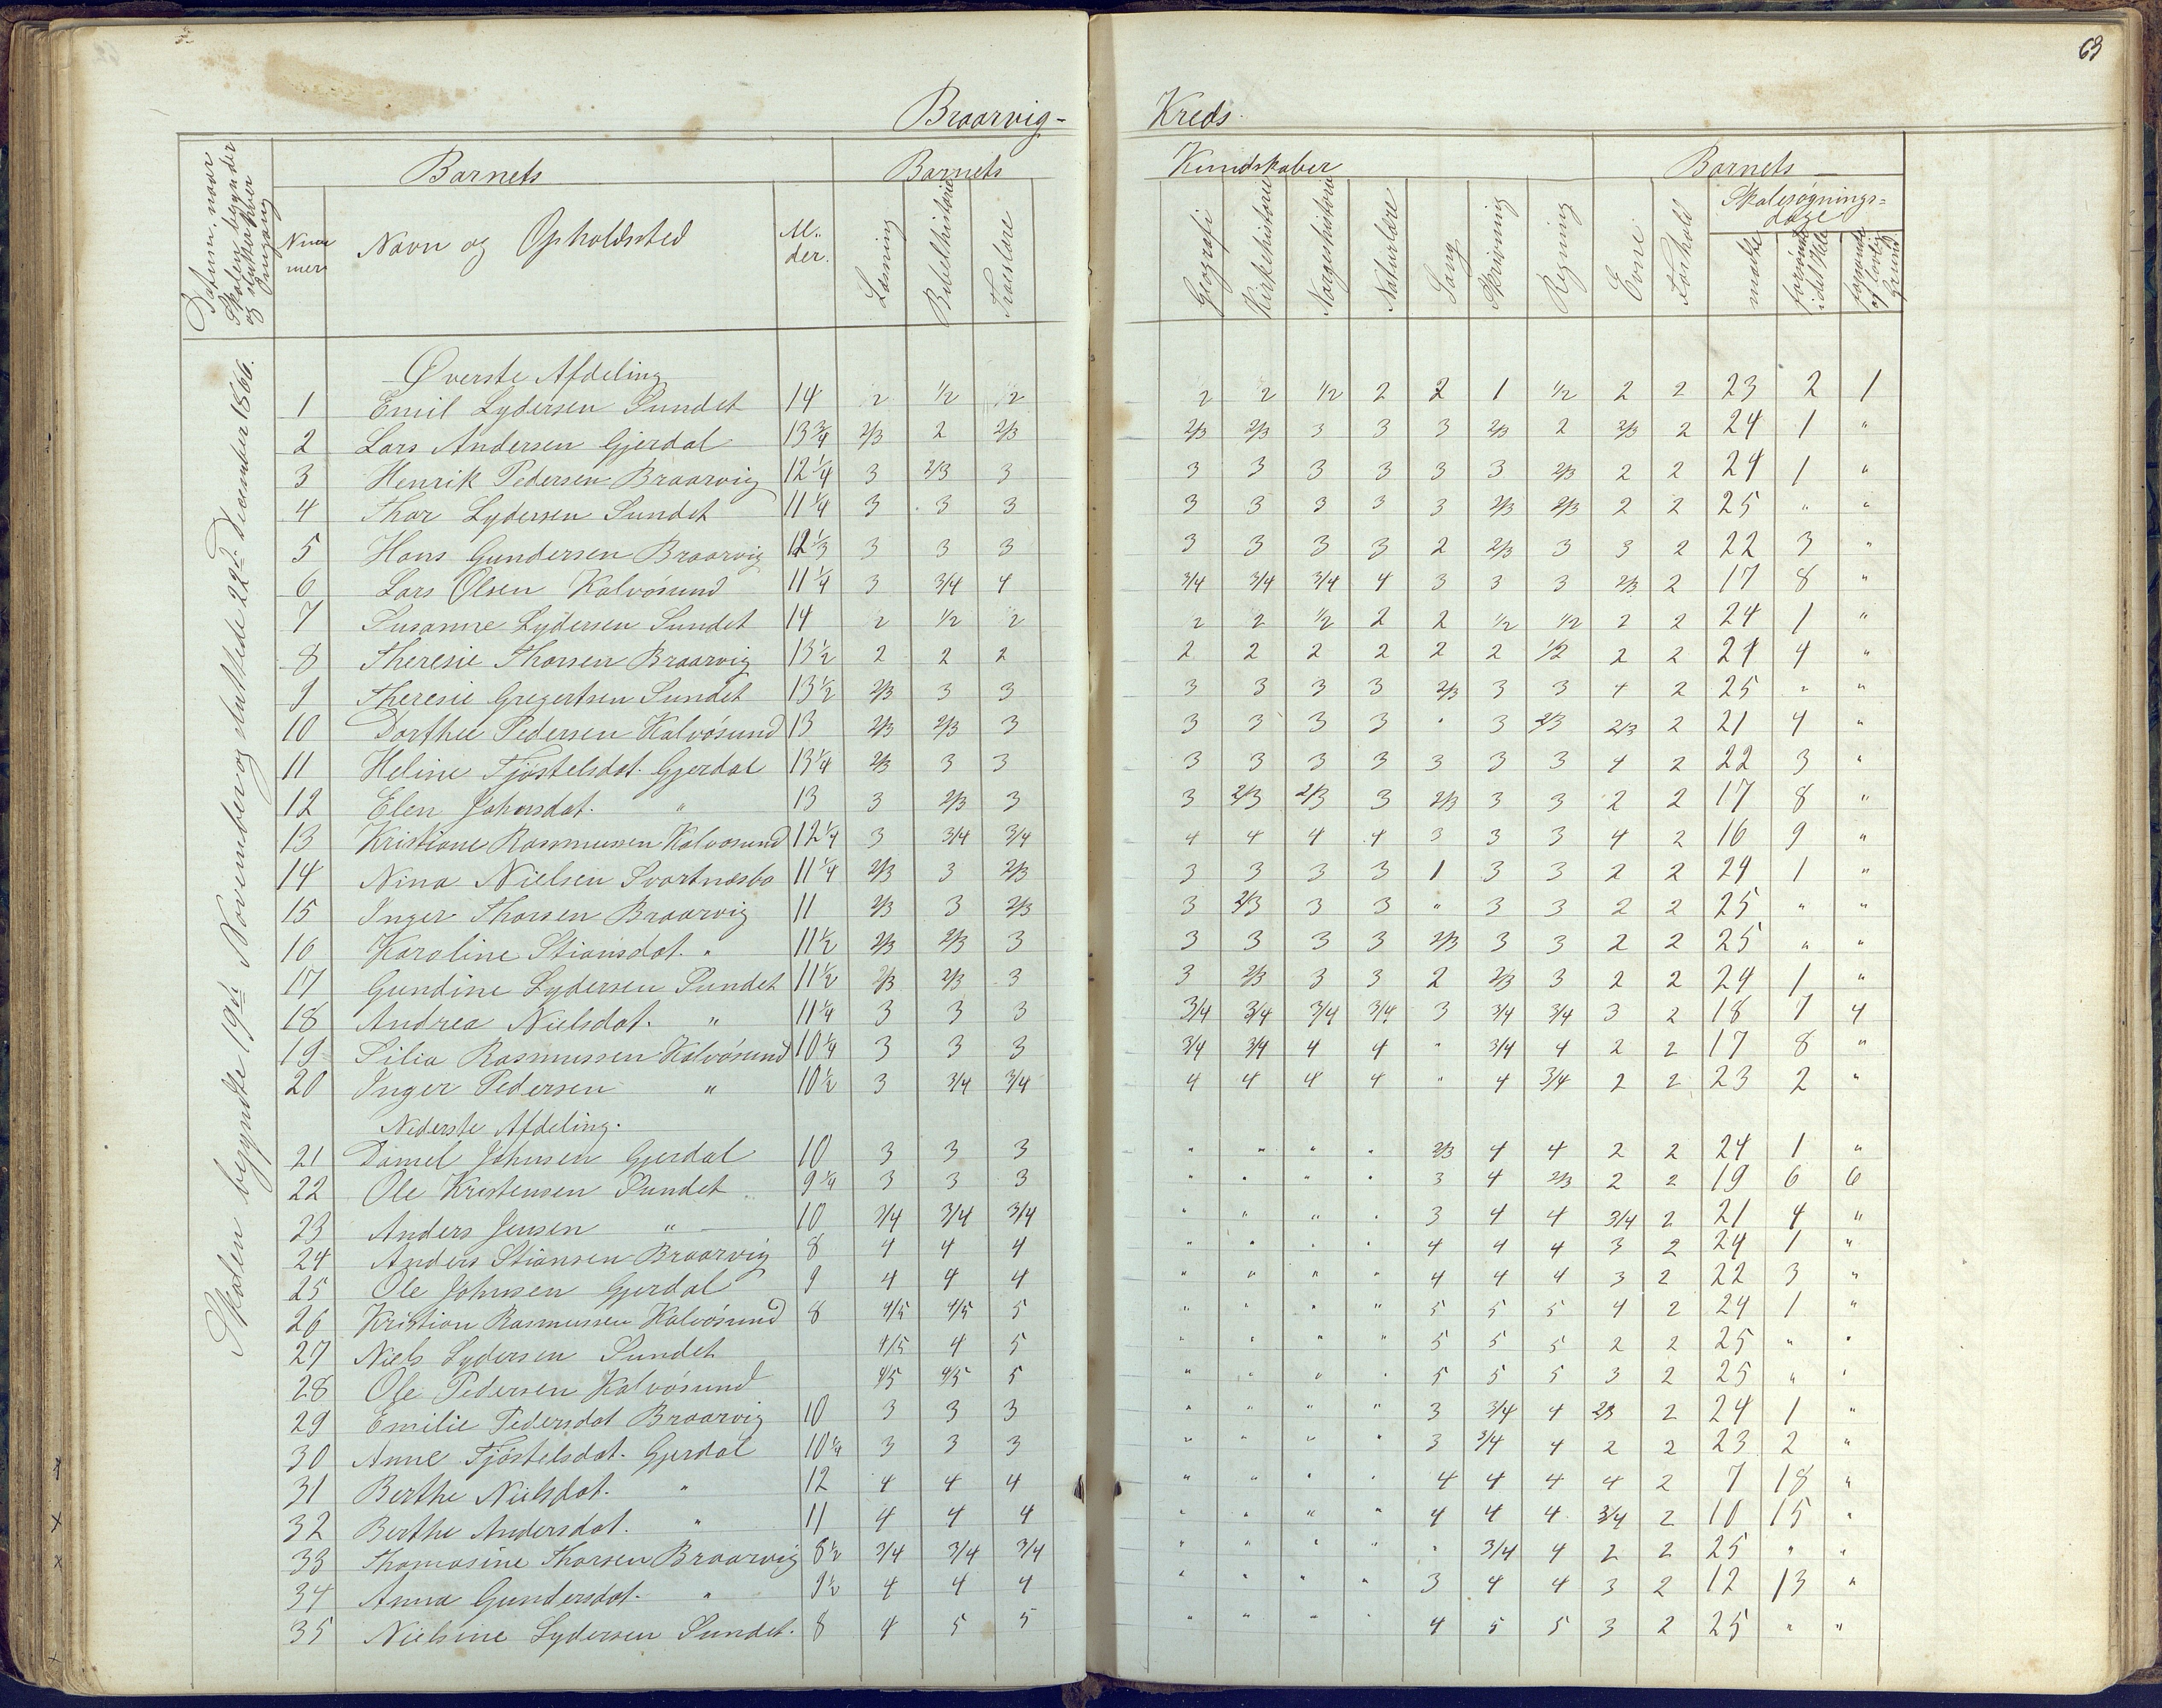 63
Braarvig- Kreds.
Datum, naar Skolen begynder og slutter hver Omgang
Barnets
Barnets Kundskaber
Barnets
Num mer
Navn og Opholdssted
Al- der.
Læsning
Bibelhistorie
Troslære
Geografi
Kirkehistorie
Norgeshistorie
Naturlære
Sang
Skrivning
Regning
Evne
Forhold
Skolesøgnings- dage
mødte
forsømte i det Hele
forsømte af lovlig Grund
Skolen begyndte 19de November og sluttede 22de December 1866.
Øverste Afdeling
1 Emil Lydersen Sundet 14 2 1/2 2 2 2 1/2 2 2 1 1/2 2 2 23 2 1
2 Lars Andersen Gjerdal 13 3/4 2/3 2 2/3 2/3 2/3 3 3 3 2/3 2 2/3 2 24 1 "
3 Henrik Pedersen Braarvig 12 1/4 3 2/3 3 3 3 3 3 3 3 2/3 2 2 24 1 "
4 Thor Lydersen Sundet 11 1/4 3 3 3 3 3 3 3 3 2/3 2/3 2 2 25 " "
5 Hans Gundersen Braarvig 12 1/3 3 3 3 3 3 3 3 2 2/3 3 3 2 22 3 "
6 Lars Olsen Kalvøsund 11 1/4 3 3/4 4 3/4 3/4 3/4 4 3 3 3 2/3 2 17 8 "
7 Susanne Lydersen Sundet 14 2 1/2 2 2 2 1/2 2 2 1/2 1/2 2 2 24 1 "
8 Theresie Thorsen Braarvig 13 1/2 2 2 2 2 2 2 2 2 2 1/2 2 2 21 4 "
9 Theresie Gregertsen Sundet 13 1/2 2/3 3 3 3 3 3 3 2/3 3 3 4 2 25 " "
10 Dorthee Pedersen Kalvøsund 13 2/3 2/3 3 3 3 3 3 " 3 2/3 2/3 2 21 4 "
11 Heline Tjøstelsdat. Gjerdal 13 1/4 2/3 3 3 3 3 3 3 3 3 3 4 2 22 3 "
12 Elen Johnsdat. " 13 3 2/3 3 3 2/3 2/3 3 2/3 3 3 2 2 17 8 "
13 Kristiane Rasmussen Kalvøsund 12 1/4 3 3/4 3/4 4 4 4 4 3 3 3 4 2 16 9 "
14 Nina Nielsen Svartnæsbo 11 1/4 2/3 3 2/3 3 3 3 3 1 3 3 2 2 24 1 "
15 Inger Thorsen Braarvig 11 2/3 3 2/3 3 2/3 3 3 " 3 3 2 2 25 " "
16 Karoline Stiansdat. " 11 1/2 2/3 2/3 3 3 3 3 3 2/3 3 3 2 2 25 " "
17 Gundine Lydersen Sundet 11 1/2 2/3 2/3 3 3 2/3 3 3 2 2/3 3 2 2 24 1 "
18 Andrea Nielsdat. " 11 1/4 3 3 3 3/4 3/4 3/4 3/4 3 3/4 3/4 3 2 18 7 4
19 Silia Rasmussen Kalvøsund 10 1/4 3 3 3 3/4 3/4 4 4 " 3/4 4 2 2 17 8 "
20 Inger Pedersen " 10 1/2 3 3/4 3/4 4 4 4 4 " 4 3/4 2 2 23 2 "
Nederste Afdeling.
21 Daniel Johnsen Gjerdal 10 3 3 3 " " " " 2/3 4 4 2 2 24 1 "
22 Ole Kristensen Sundet 9 1/4 3 3 3 " " " " 3 4 2/3 2 2 19 6 6
23 Anders Jensen " 10 3/4 3/4 3/4 " " " " 3 4 4 3/4 2 21 4 "
24 Anders Stiansen Braarvig 8 4 4 4 " " " " 4 4 4 3 2 24 1 "
25 Ole Johnsen Gjerdal 9 4 4 4 " " " " 4 4 4 3 2 22 3 "
26 Kristian Rasmussen Kalvøsund 8 4/5 4/5 5 " " " " 5 5 5 4 2 24 1 "
27 Niels Lydersen Sundet 4/5 4 5 " " " " 5 5 5 2 2 25 " "
28 Ole Pedersen Kalvøsund 4/5 4/5 5 " " " " 5 5 5 3 2 25 " "
29 Emilie Pedersdat Braarvig 10 3 3 3 " " " " 3 3/4 4 2/3 2 24 1 "
30 Anne Tjøstelsdat. Gjerdal 10 1/4 3 3 3 " " " " 3 3/4 4 2 2 23 2 "
31 Berthe Nielsdat. " 12 4 4 4 " " " " 4 4 4 4 2 7 18 "
32 Berthe Andersdat. " 11 4 4 4 " " " " 4 4 4 3/4 2 10 15 "
33 Thomasine Thorsen Braarvig 8 1/2 3/4 3/4 3/4 " " " " " 3/4 4 2 2 25 " "
34 Anna Gundersdat. " 9 1/2 4 4 4 " " " " 3 4 4 3 2 12 13 "
35 Nielsine Lydersen Sundet. 8 4 5 5 " " " " 4 5 5 3 2 25 " "